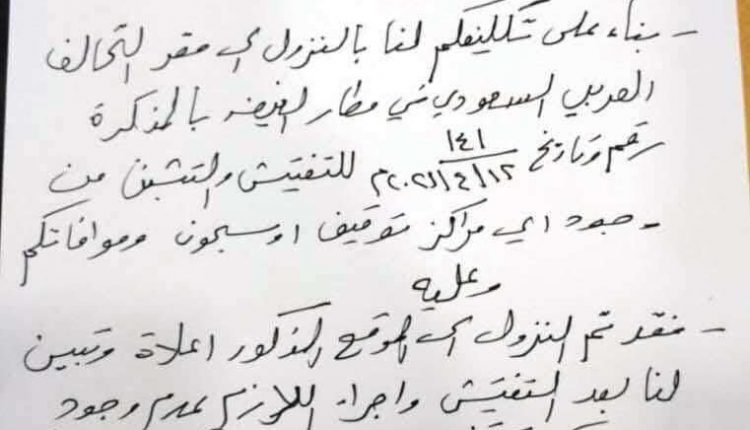 - بناء على تكليفكم لنا بالنزول الى مقر التحالف
العربي السعودي في مطار الغيضه بالمذكرة
رقم وتاريخ ١٤١ / ١٢/٤/٢٠٢١م للتفتيش والتبين من
- وجود اي مراكز توقيف او سجون وموافاتكم
وعليه
- فقد تم النزول الى الموقع المذكور اعلاة وتبين
لنا بعد التفتيش واجراء اللازم عدم وجود